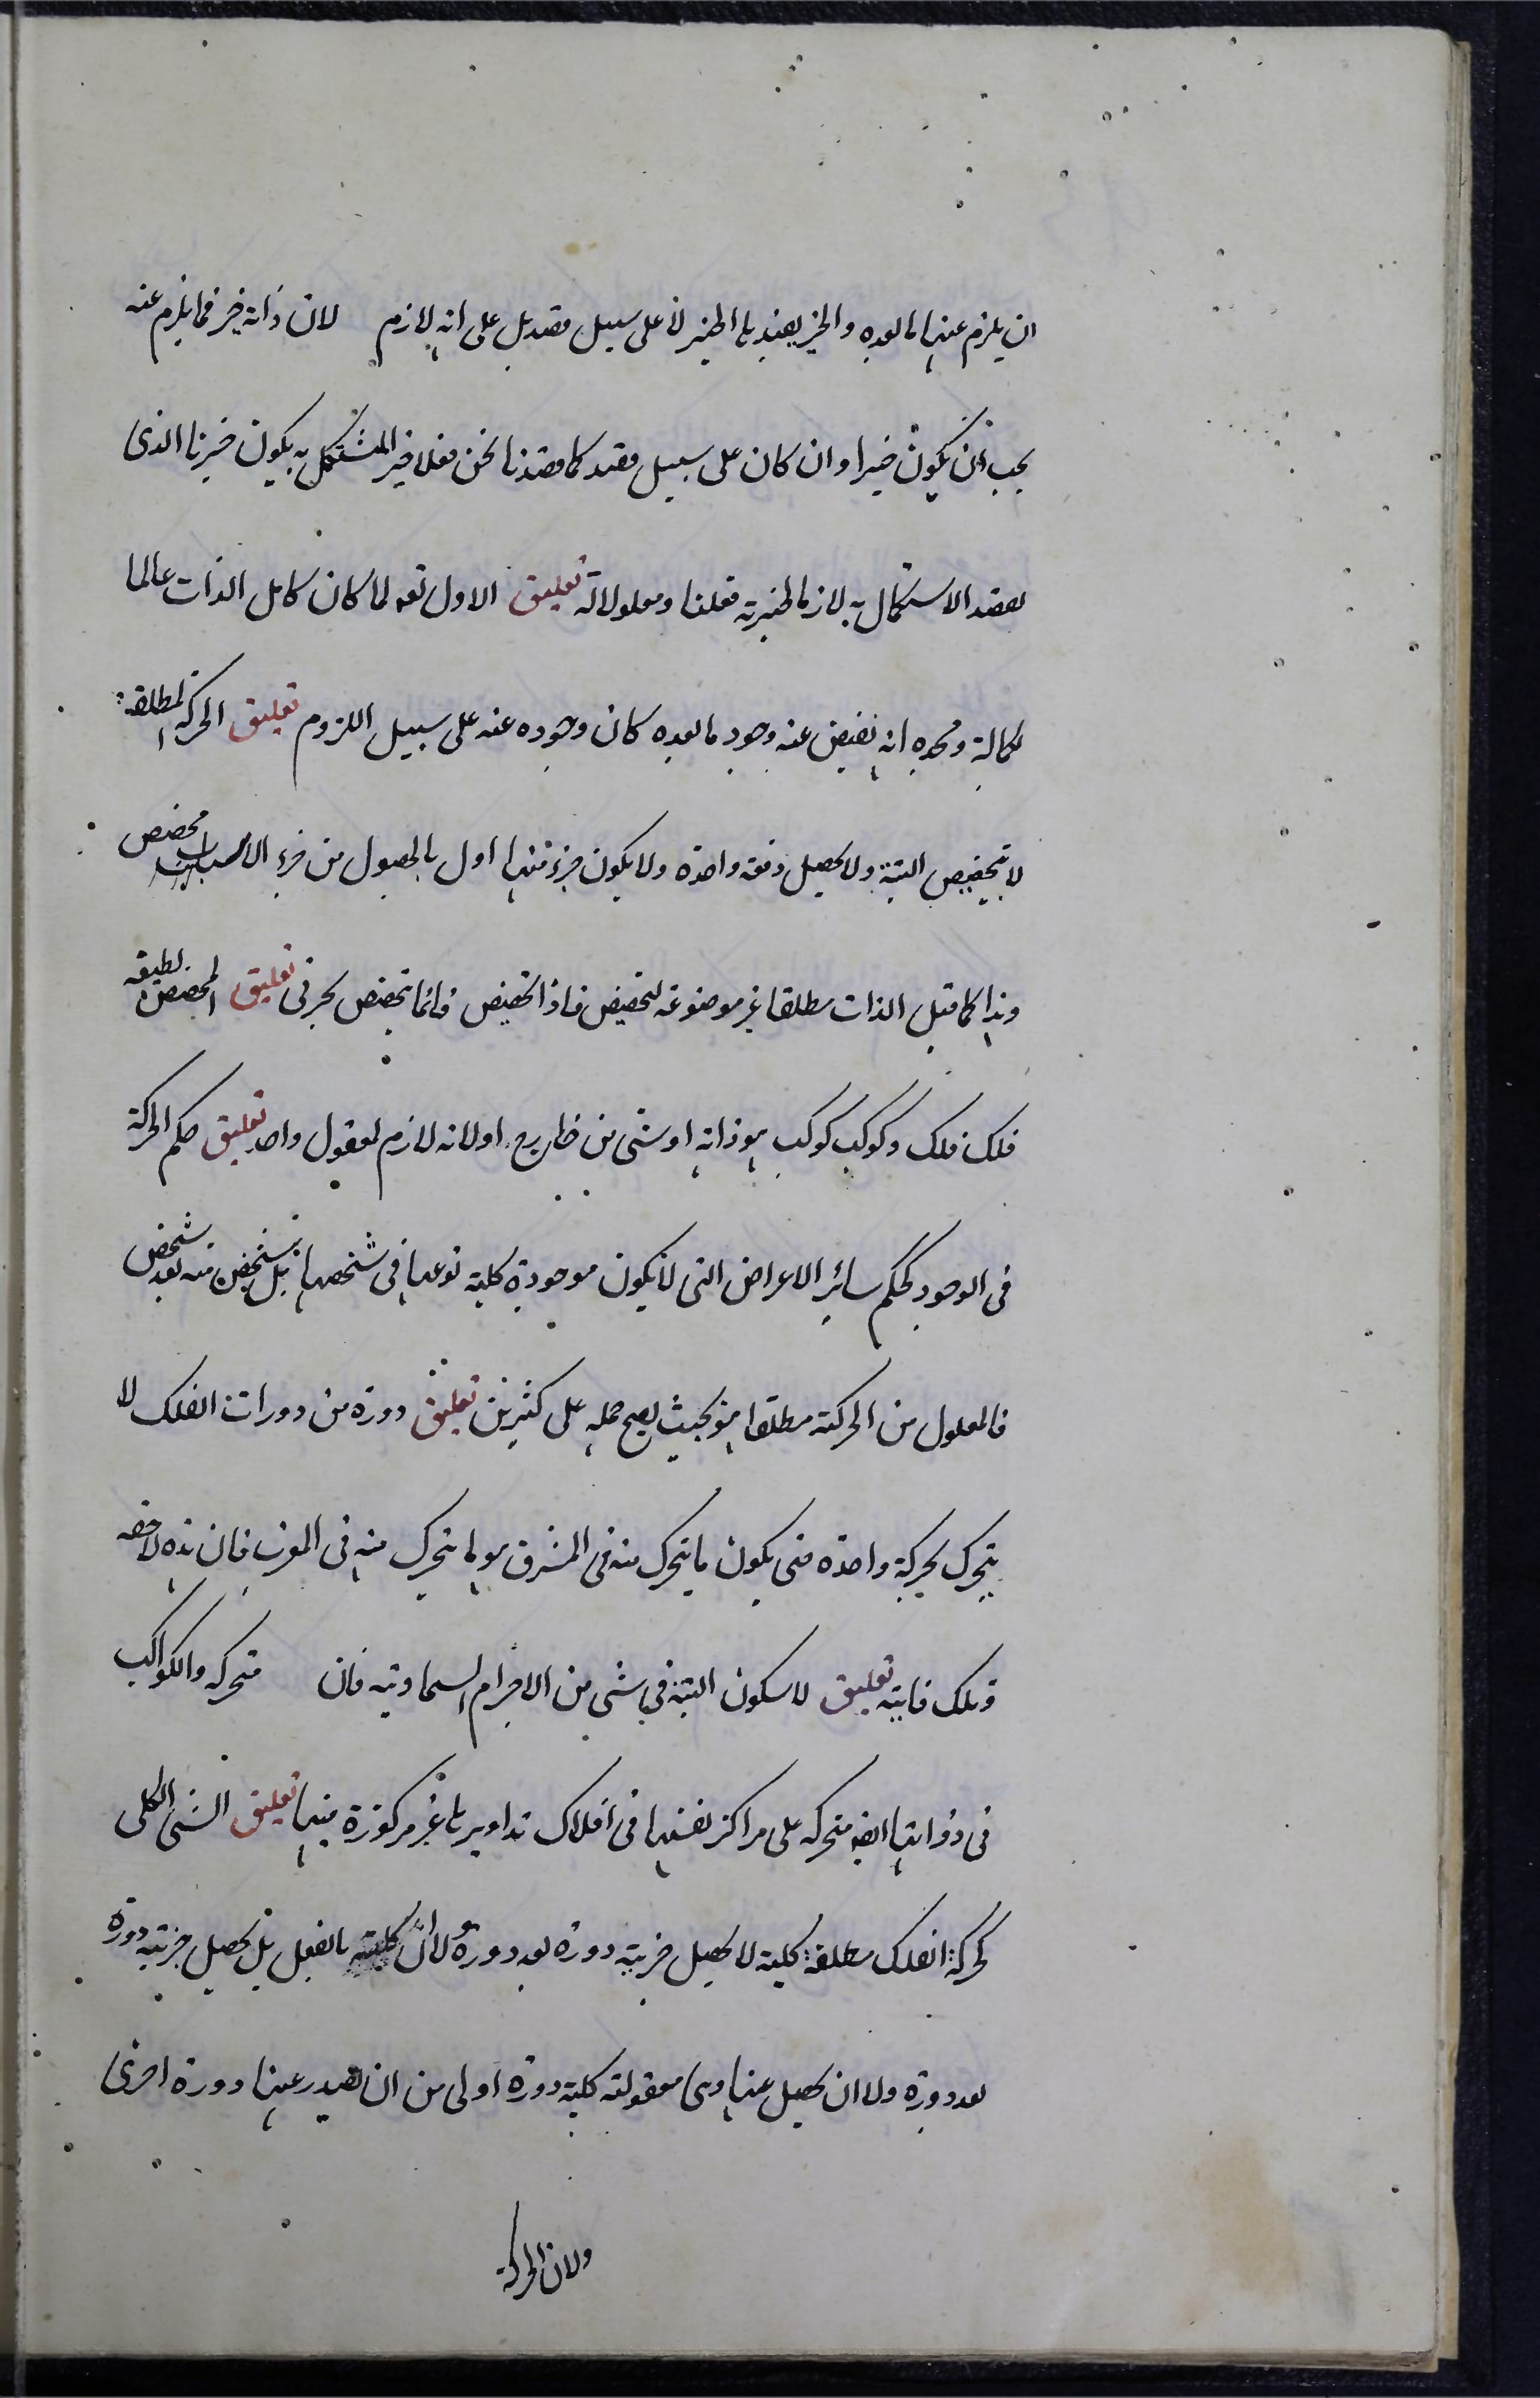 ان يلزم عنها ما بعده والخير يفيد بالخير لا على سبيل قصد بل على انه لازم لان ذاته خير فما يلزم عنه
يجب ان يكون خيرا وان كان على سبيل قصد كما قصدنا نحن فعلا خير المستكمل به يكون خيرنا الذى
نقصد الاستكمال به لازما لخيرته فعلنا ومعلولاته تعليق الاول تعه لما كان كامل الذات عالما
بكماله ومجده انه يفيض عنه وجود ما بعده كان وجوده عنه على سبيل اللزوم تعليق الحركة المطلقة
لا تتخصص البتة ولا تحصل دفعة واحدة ولا يكون جزء منها اولى بالحصول من جزء الا لاسباب مخصص
وهذا كما قبل الذات مطلقا غير موضوعة لتخصيص فاذا تخصص فانما تخصص بجزئى تعليق المخصص لطبيعة
فلك فلك وكوكب كوكب هو ذاته او شئ من خارج او لانه لازم لمعقول واحد تعليق حكم الحركة
فى الوجود كحكم سائر الاعراض التى لا يكون موجودة كلية نوعها فى شخصها بل يتشخص منه بعد شخص
فالمعلول من الحركة مطلقا هو بحيث يصح حمله على كثيرين تعليق دورة من دورات الفلك لا
يتحرك بحركة واحدة حتى يكون ما يتحرك منه فى المشرق هو ما يتحرك منه فى المغرب فان هذه لاحقه
وتلك فايته تعليق لا سكون البتة فى شئ من الاجرام السماوية فان متحركه والكواكب
فى ذواتها ايضه متحركه على مراكز نفسها فى افلاك تداويرها غير مركوزة فيها تعليق الشئ الكلى
كحركة الفلك مطلقة كلية لا يحصل جزيته دورة بعد دورة والا ان كليته بالفعل بل يحصل جزيته دورة
بعد دورة ولا ان يحصل عنها وهى معقولة كلية دورة اولى من ان يصدر عنها دورة اخرى
ولان الحركة